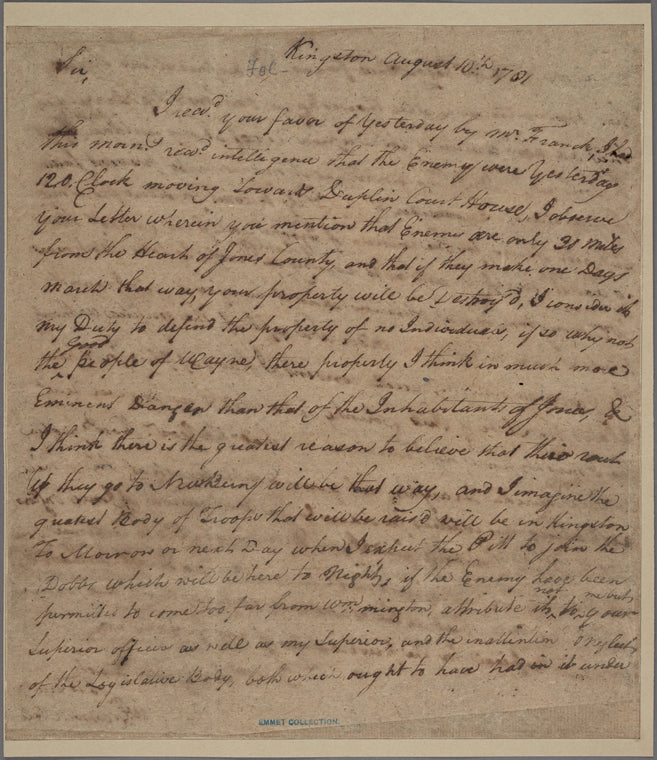 Kingston August 10th 1781
Sir, Fol-
I recd. your favor of Yesterday by Mr. Franck, I had
this mornd. recd. intelligence that the Enemy were Yesterday
12 O, Clock moving Towards Duplin Court House, I observe
your Letter wherein you mention that Enemy are only 30 miles
from the Heart of Jones County, and that if they make one Days
march that way, your property will be Destroy'd, I consider it
my Duty to defend the property of no Individual, if so why not
the Good People of Wayne, there property I think in much more
Eminent Danger than that of the Inhabitants of Jones, &
I think there is the greatest reason to believe that their rout
if they go to Newbern, will be that way, and I imagine the
greatest Body of Troops that will be rais'd will be in Kingston
To Morrow or next Day when I expect the Pitt to join the
Dobbs which will be here to Night, if the Enemy have been
permitted to come too far from Wm.mington, attribute it not to me but your
Superior officer as well as my Superior, and the inattention or neglect
of the Legislative Body, both which ought to have had in it under
EMMET COLLECTION.